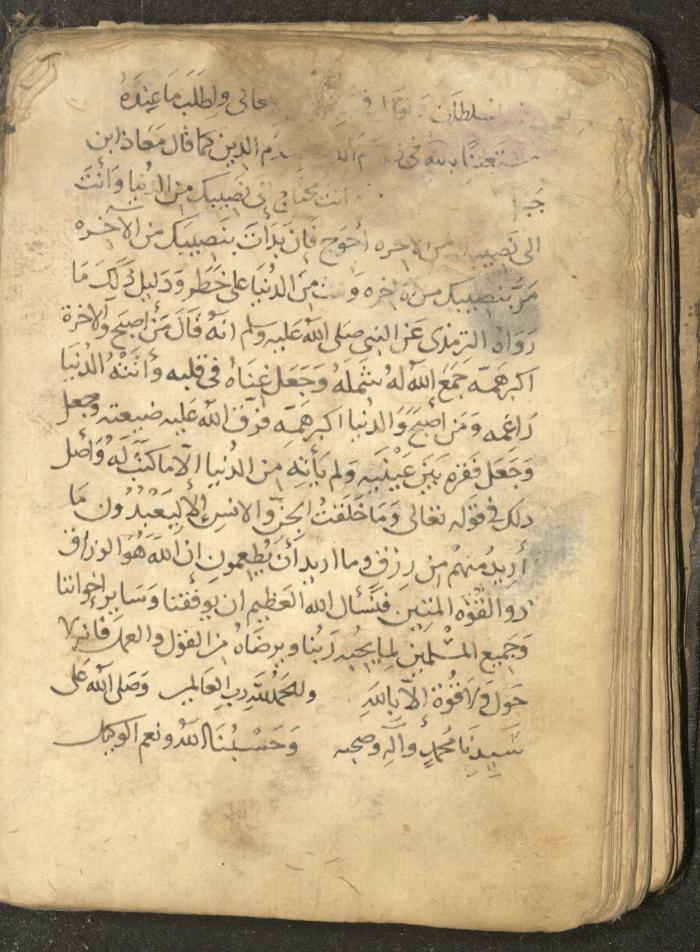 السلطان تعالى واطلب ما عنده
مستعينا بالله في الدين كما قال معاذ ابن
جبل انت محتاج الى نصيبك من الدنيا وانت
الى نصيبك من الاخره احوج فان بدأت بنصيبك من الاخره
مرّ بنصيبك من من الدنيا على خطر ودليل ذلك ما
رواه الترمذي عن النبي صلى الله عليه وسلم انه قال من اصبح والاخرة
اكبر همه جمع الله له شمله وجعل غناه في قلبه وأتته الدنيا
راغمه ومن اصبح والدنيا اكبر همه فرّق الله عليه ضيعته وجعل
وجعل فقره بين عينيه ولم يأته من الدنيا الا ما كتب له وأصل
ذلك في قوله تعالى وما خلقت الجن والانس إلا ليعبدون ما
أريد منهم من رزق وما اريد أن يطعمون ان الله هو الرزاق
ذو القوه المتين فنسأل الله العظيم ان يوفقنا وساير اخواننا
وجميع المسلمين لما يحبه ربنا ويرضاه من القول والعمل فانه لا
حول ولا قوة الا بالله والحمد لله رب العالمين وصلى الله على
سيدنا محمدٍ وآله وصحبه وحسبنا الله ونعم الوكيل